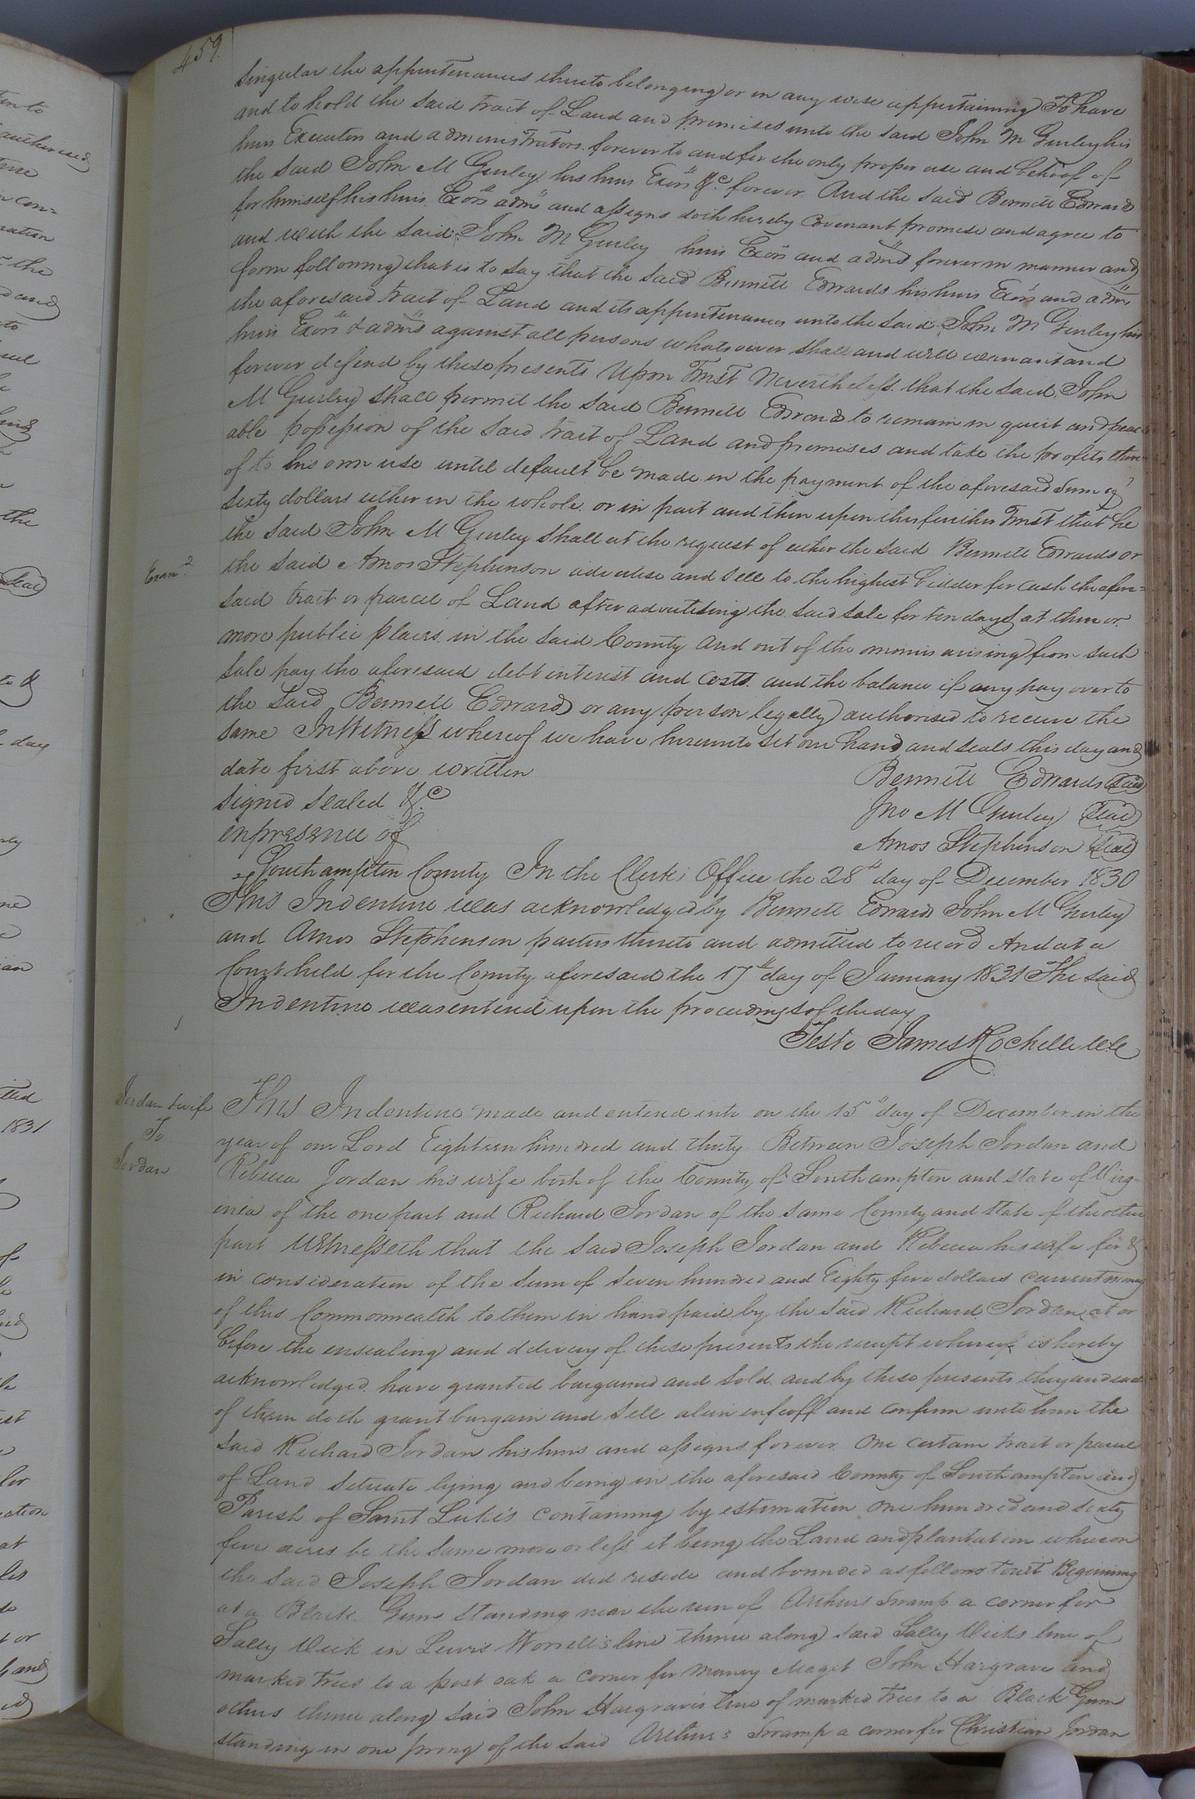 459
singular the appurtenances thereto belonging or in any wise appertaining To have
and to hold the said tract of Land and premises unto the said John M Gurley his
heirs Executors and administrators forever to and for the only proper use and behoof of
the said John M Gurley his heirs Exors &c forever And the said Bennett Edwards
for himself his heirs Exors adms and assigns doth hereby covenant promise and agree to
and with the said John M Gurley heirs Exors and adms forever in manner and
form following that is to say that the said Bennett Edwards his heirs Exors and adms
the aforesaid tract of Land and its appurtenances unto the said John M Gurley his
heirs Exors & adms against all persons whatsoever shall and will warrant and
forever defend by these presents Upon Trust Nevertheless that the said John
M Gurley shall permit the said Bennett Edwards to remain in quiet and peace
able possession of the said tract of Land and premises and take the profits there
of to his own use until default be made in the payment of the aforesaid sum of
sixty dollars either in the whole or in part and then upon this further Trust that he
the said John M Gurley shall at the request of either the said Bennett Edwards or
Examd
the said Amos Stephenson advertise and sell to the highest bidder for cash the afore=
said tract or parcel of Land after advertising the said sale for ten days at three or
more public places in the said County and out of the monies arising from such
sale pay the aforesaid debt interest and costs and the balance if any pay over to
the said Bennett Edwards or any person legally authorised to receive the
same In Witness whereof we have hereunto set our hand and seals this day and
date first above written
Bennett Edwards Seal
signed sealed &c
Jno M Gurley Seal
in presence of
Amos Stephenson Seal
Southampton County In the Clerks Office the 28th day of December 1830
This Indenture was acknowledged by Bennett Edwards John M Gurley
and Amos Stephenson parties thereto and admitted to record And at a
Court held for the County aforesaid the 17th day of January 1831 The said
Indenture was entered upon the proceedings of the day
Teste James Rochelle
Jordan & wife
To
Jordan
This Indenture made and entered into on the 15th day of December in the
year of our Lord Eighteen hundred and thirty Between Joseph Jordan and
Rebecca Jordan his wife both of the County of Southampton and state of Virg
inia of the one part and Richard Jordan of the same County and state of the other
part Witnesseth that the said Joseph Jordan and Rebecca his wife for &
in consideration of the sum of seven hundred and Eighty five dollars current money
of this Commonwealth to them in hand paid by the said Richard Jordan at or
before the ensealing and delivery of these presents the receipt whereof is hereby
acknowledged have granted bargained and sold and by these presents they and each
of them doth grant bargain and sell alien enfeoff and confirm unto him the
said Richard Jordan his heirs and assigns forever One certain tract or parcel
of Land situate lying and being in the aforesaid County of Southampton and
Parish of Saint Luke's containing by estimation One hundred and sixty
five acres be the same more or less it being the Land and plantation whereon
the said Joseph Jordan did reside and bounded as follows towit Beginning
at a Black Gum standing near the run of Arthurs Swamp a corner for
Sally Vick in Lewis Worrell's line thence along said Sally Vicks line of
marked trees to a post oak a corner for Maget John Hargrave and
others thence along said John Hargraves line of marked trees to a Black Gum
standing in one prong of the said Arthur's Swamp a corner for Christian Jordan